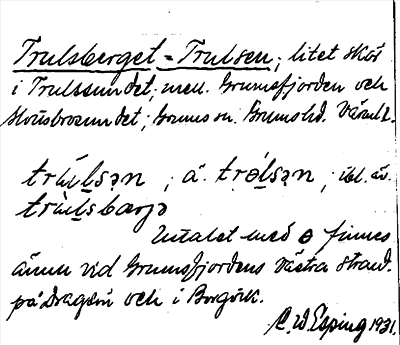 Trulsberget = Trulsen; litet skär
i Trulssundet, mell. Grumsfjorden och
brosundet; Grums sn. Grums hd. Värml.
trʉ̀l̥sən ; ä. trɵ̀lsən ; ibl. äv.
trʉ̀l̥sbærjə
Uttalet med ɵ finnes
ännu vid Grumsfjordens västra strand.
på Dragsni och i Borgvik.
C. W Esping 1931.